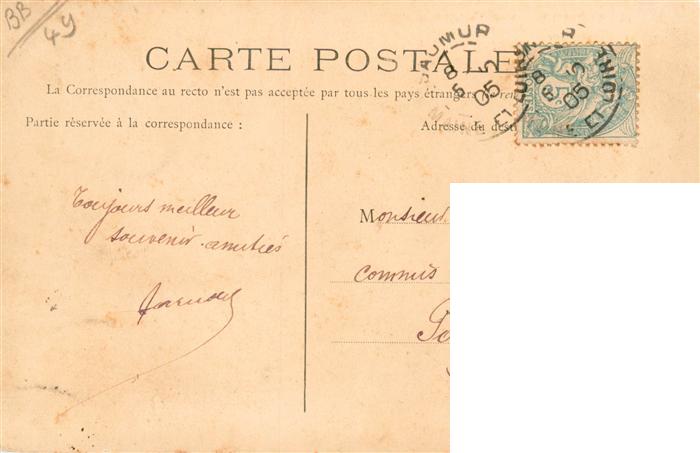 BB
49
CARTE POSTALE
La Correspondance au recto n'est pas acceptée par tous les pays étrangers
Partie réservée à la correspondance :
Adresse du desti
SAUMUR
8
5-2
05
MAINE-ET-LOIRE
8
5-2
05
ET-LOIRE
Toujours meilleur
souvenir. amitiés
Monsieur
commis